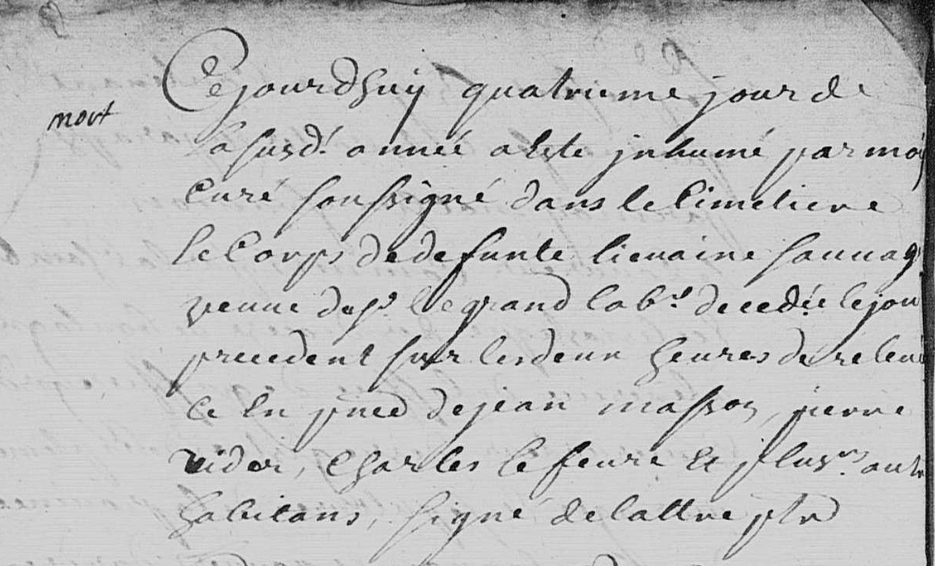 Cejourdhuy quatrieme jour de
mort
la susd. année a este inhumé par moy
curé soussigné dans le Cimetiere
le Corps de defunte lienaine sauuag
veuue de p. le grand lab. decedée le jou
precedent sur les deux heures de releu
ce en pnce de jean masson, pierre
vidor, Charles le feure et plus. autr
habitans, signé delattre ptr